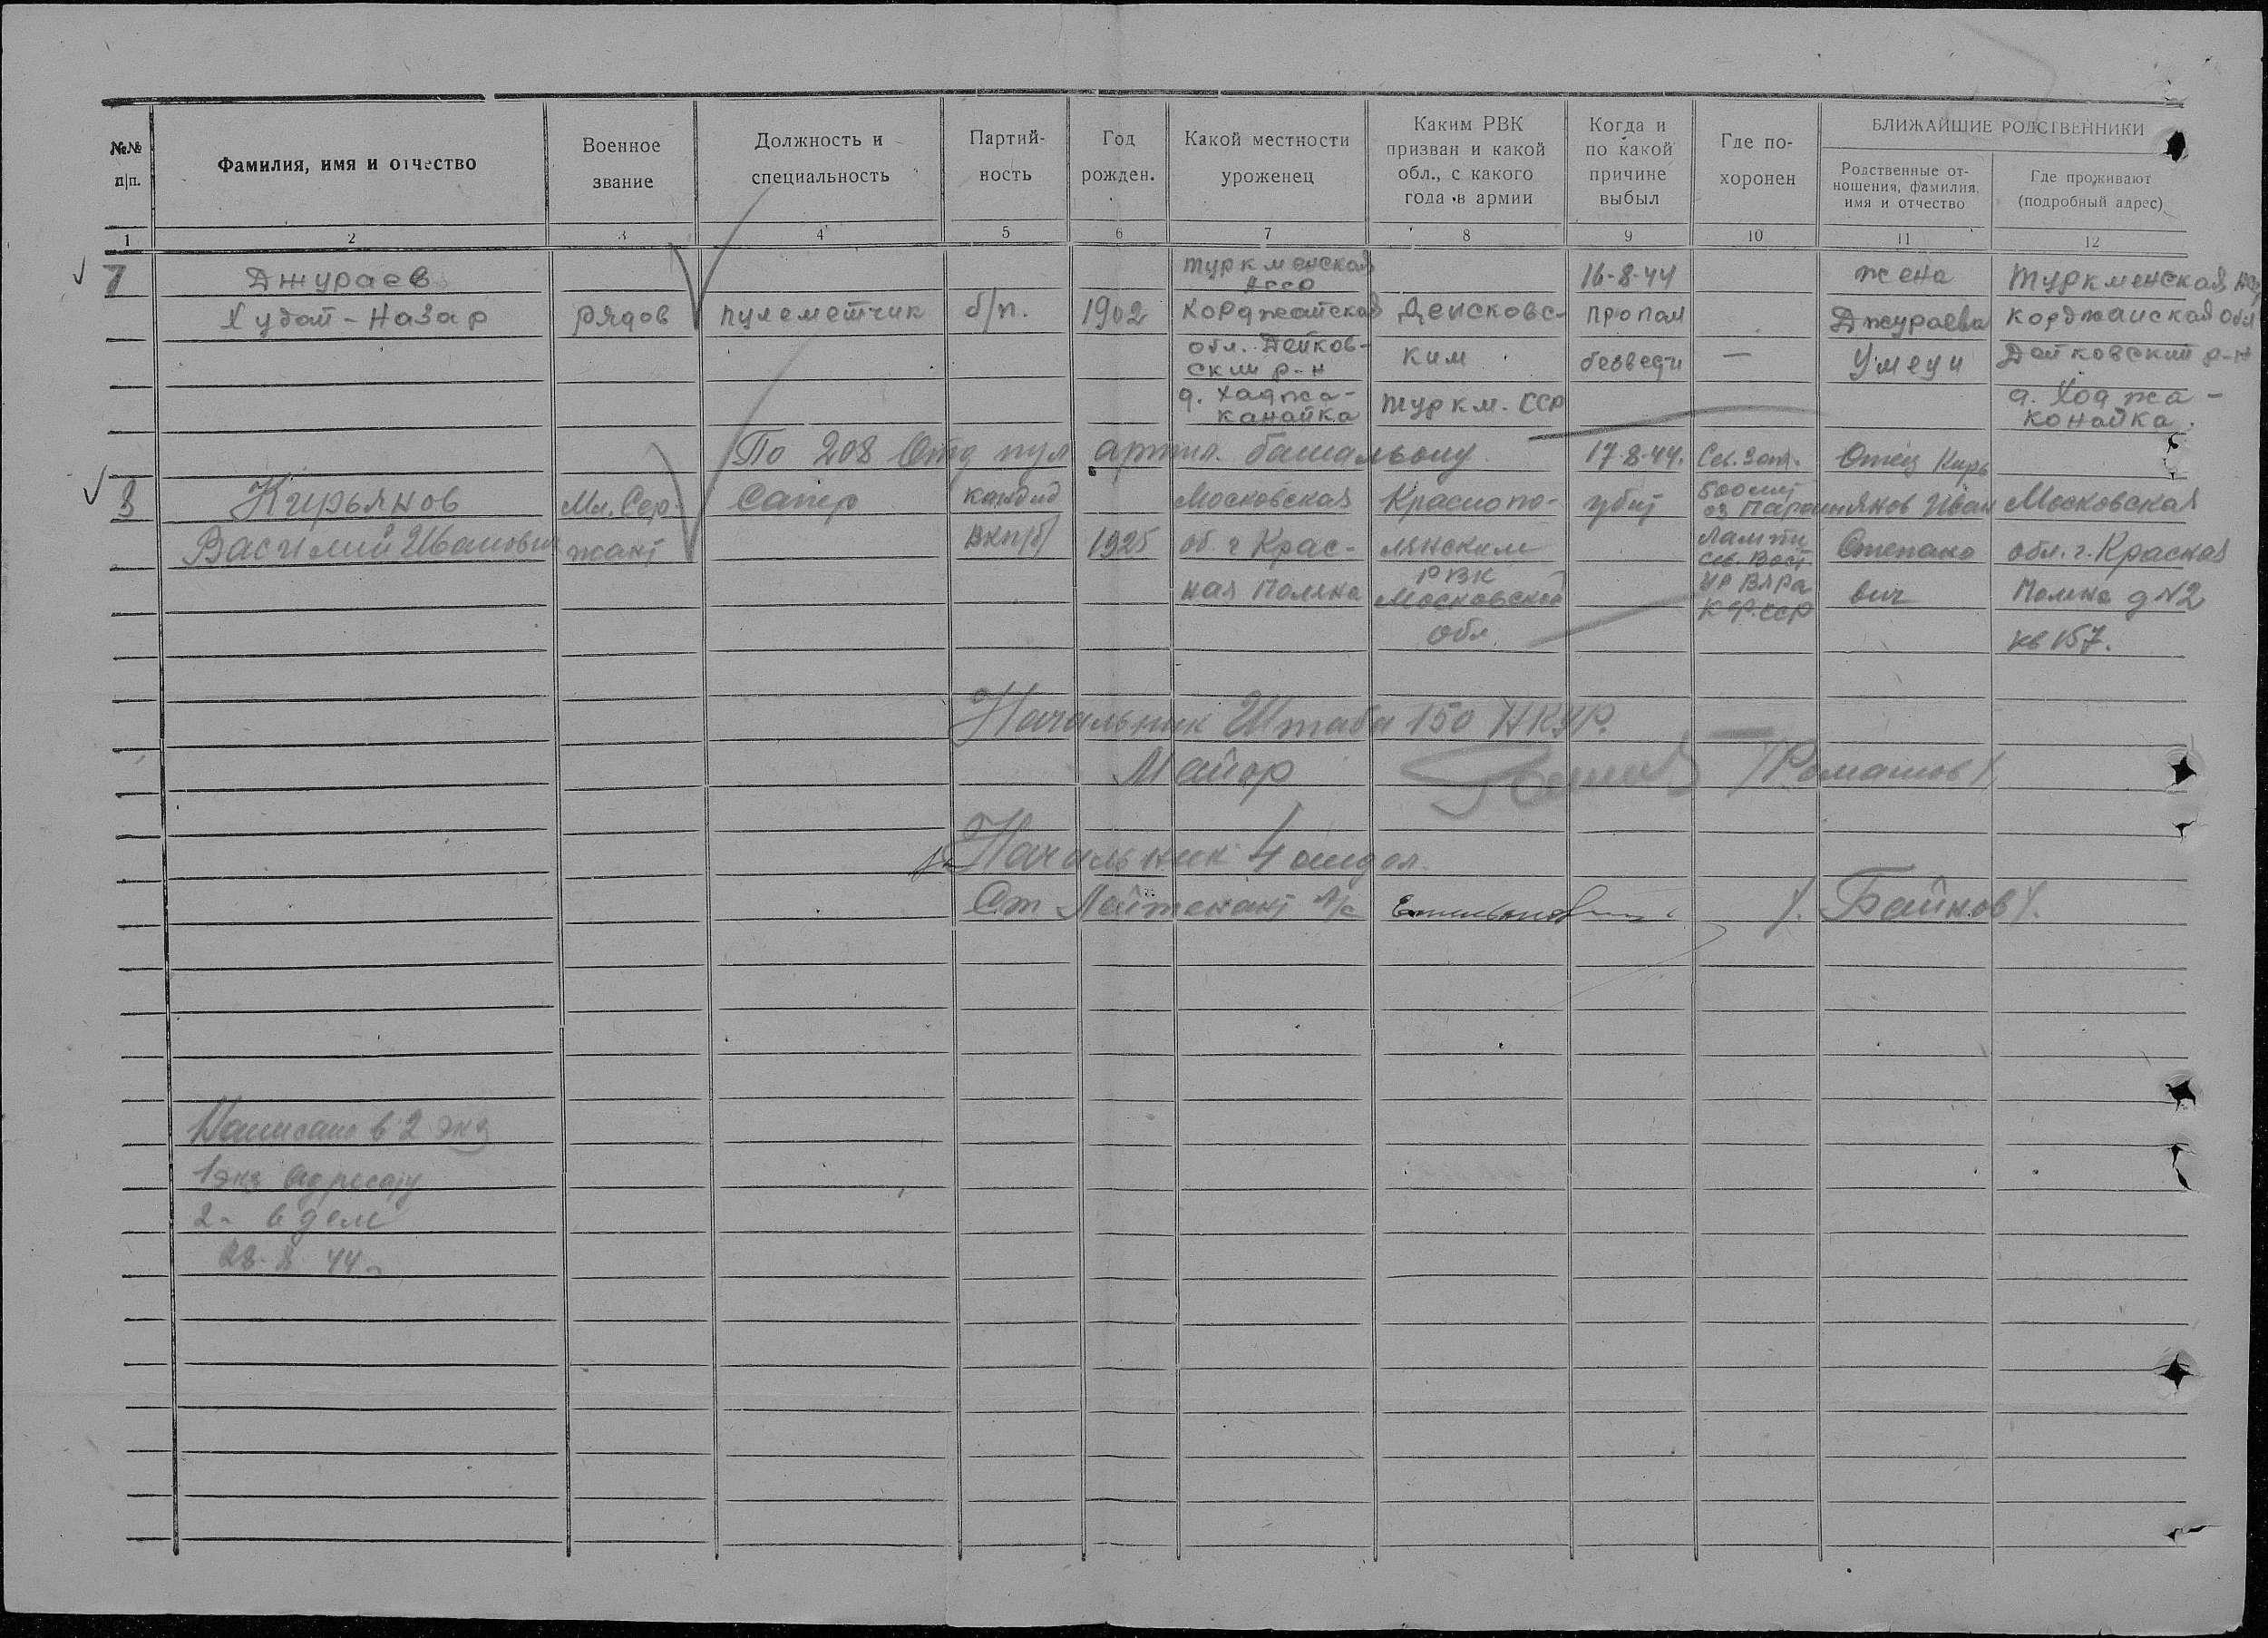 №№ п/п.
Фамилия, имя и отчество
Военное звание
Должность и специальность
Партий-ность
Год рожден.
Какой местности уроженец
Каким РВК призван и какой обл., с какого года в армии
Когда и по какой причине выбыл
Где по-хоронен
БЛИЖАЙШИЕ РОДСТВЕННИКИ
Родственные от-ношения, фамилия, имя и отчество
Где проживают (подробный адрес)
1 2 3 4 5 6 7 8 9 10 11 12
7 Джураев туркменская 16-8-44 жена Туркменская
Худай-Назар рядов пулеметчик б/п. 1902 Корджайская Дейсковс- пропал Джураева Корджайская обл
обл. Дейков- ким безвести — Умеди Дейковский р-н
ский р-н
д. Хаджа- Туркм. ССР д. Ходжа-
канайка конайка.
По 208 Отд пул артил. батальону 17-8-44. Сев. Зап. Отец Кирь
8 Кирьянов Мл. Сер- Сапер кандид Московская Краснопо- убит 500 мт янов Иван Московская
Василий Иванович жант ВКП/б/ 1925 об. г Крас- лянским Сев. Вост Степано обл. г. Красная
ная Поляна РВК вич Поляна д N2
Московской К Ф. ССР
обл. кв 157.
Начальник Штаба 150 АКУР.
Майор /Ромашов/
Начальник 4 отдел.
Ст Лейтенант А/с /. Байнов /.
Написано в 2 экз
1 экз адресату
2- в дело
28. 8 44 г